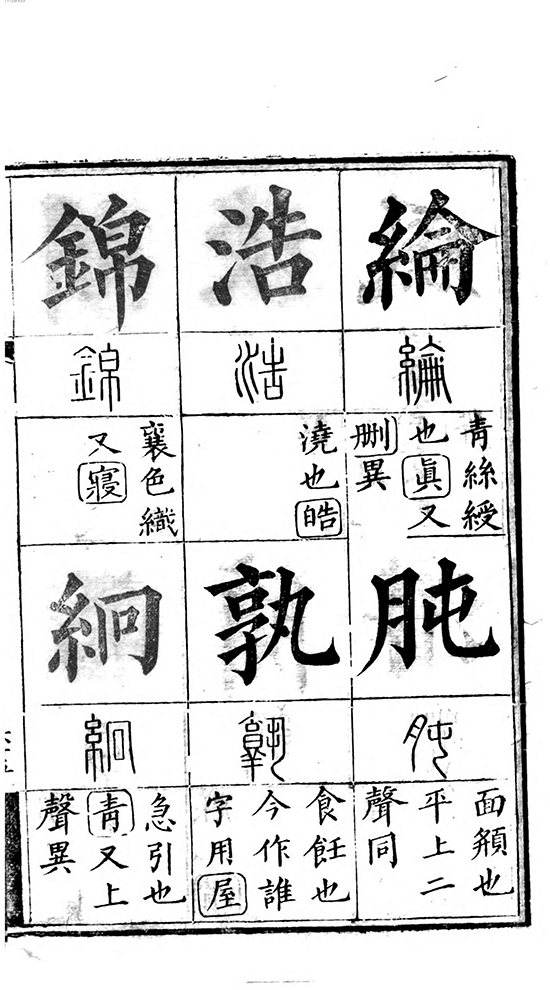 綸
綸
青絲綬
也眞又
删異
肫
肫
面頯也
平上二
聲同
浩
浩
澆也皓
孰
孰
食飪也
今作誰
字用屋
錦
錦
襄色織
又寢
絅
絅
急引也
青又上
聲異